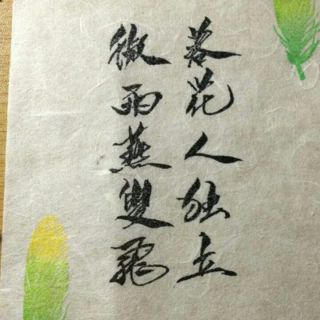 落花人独立
微雨燕雙飛